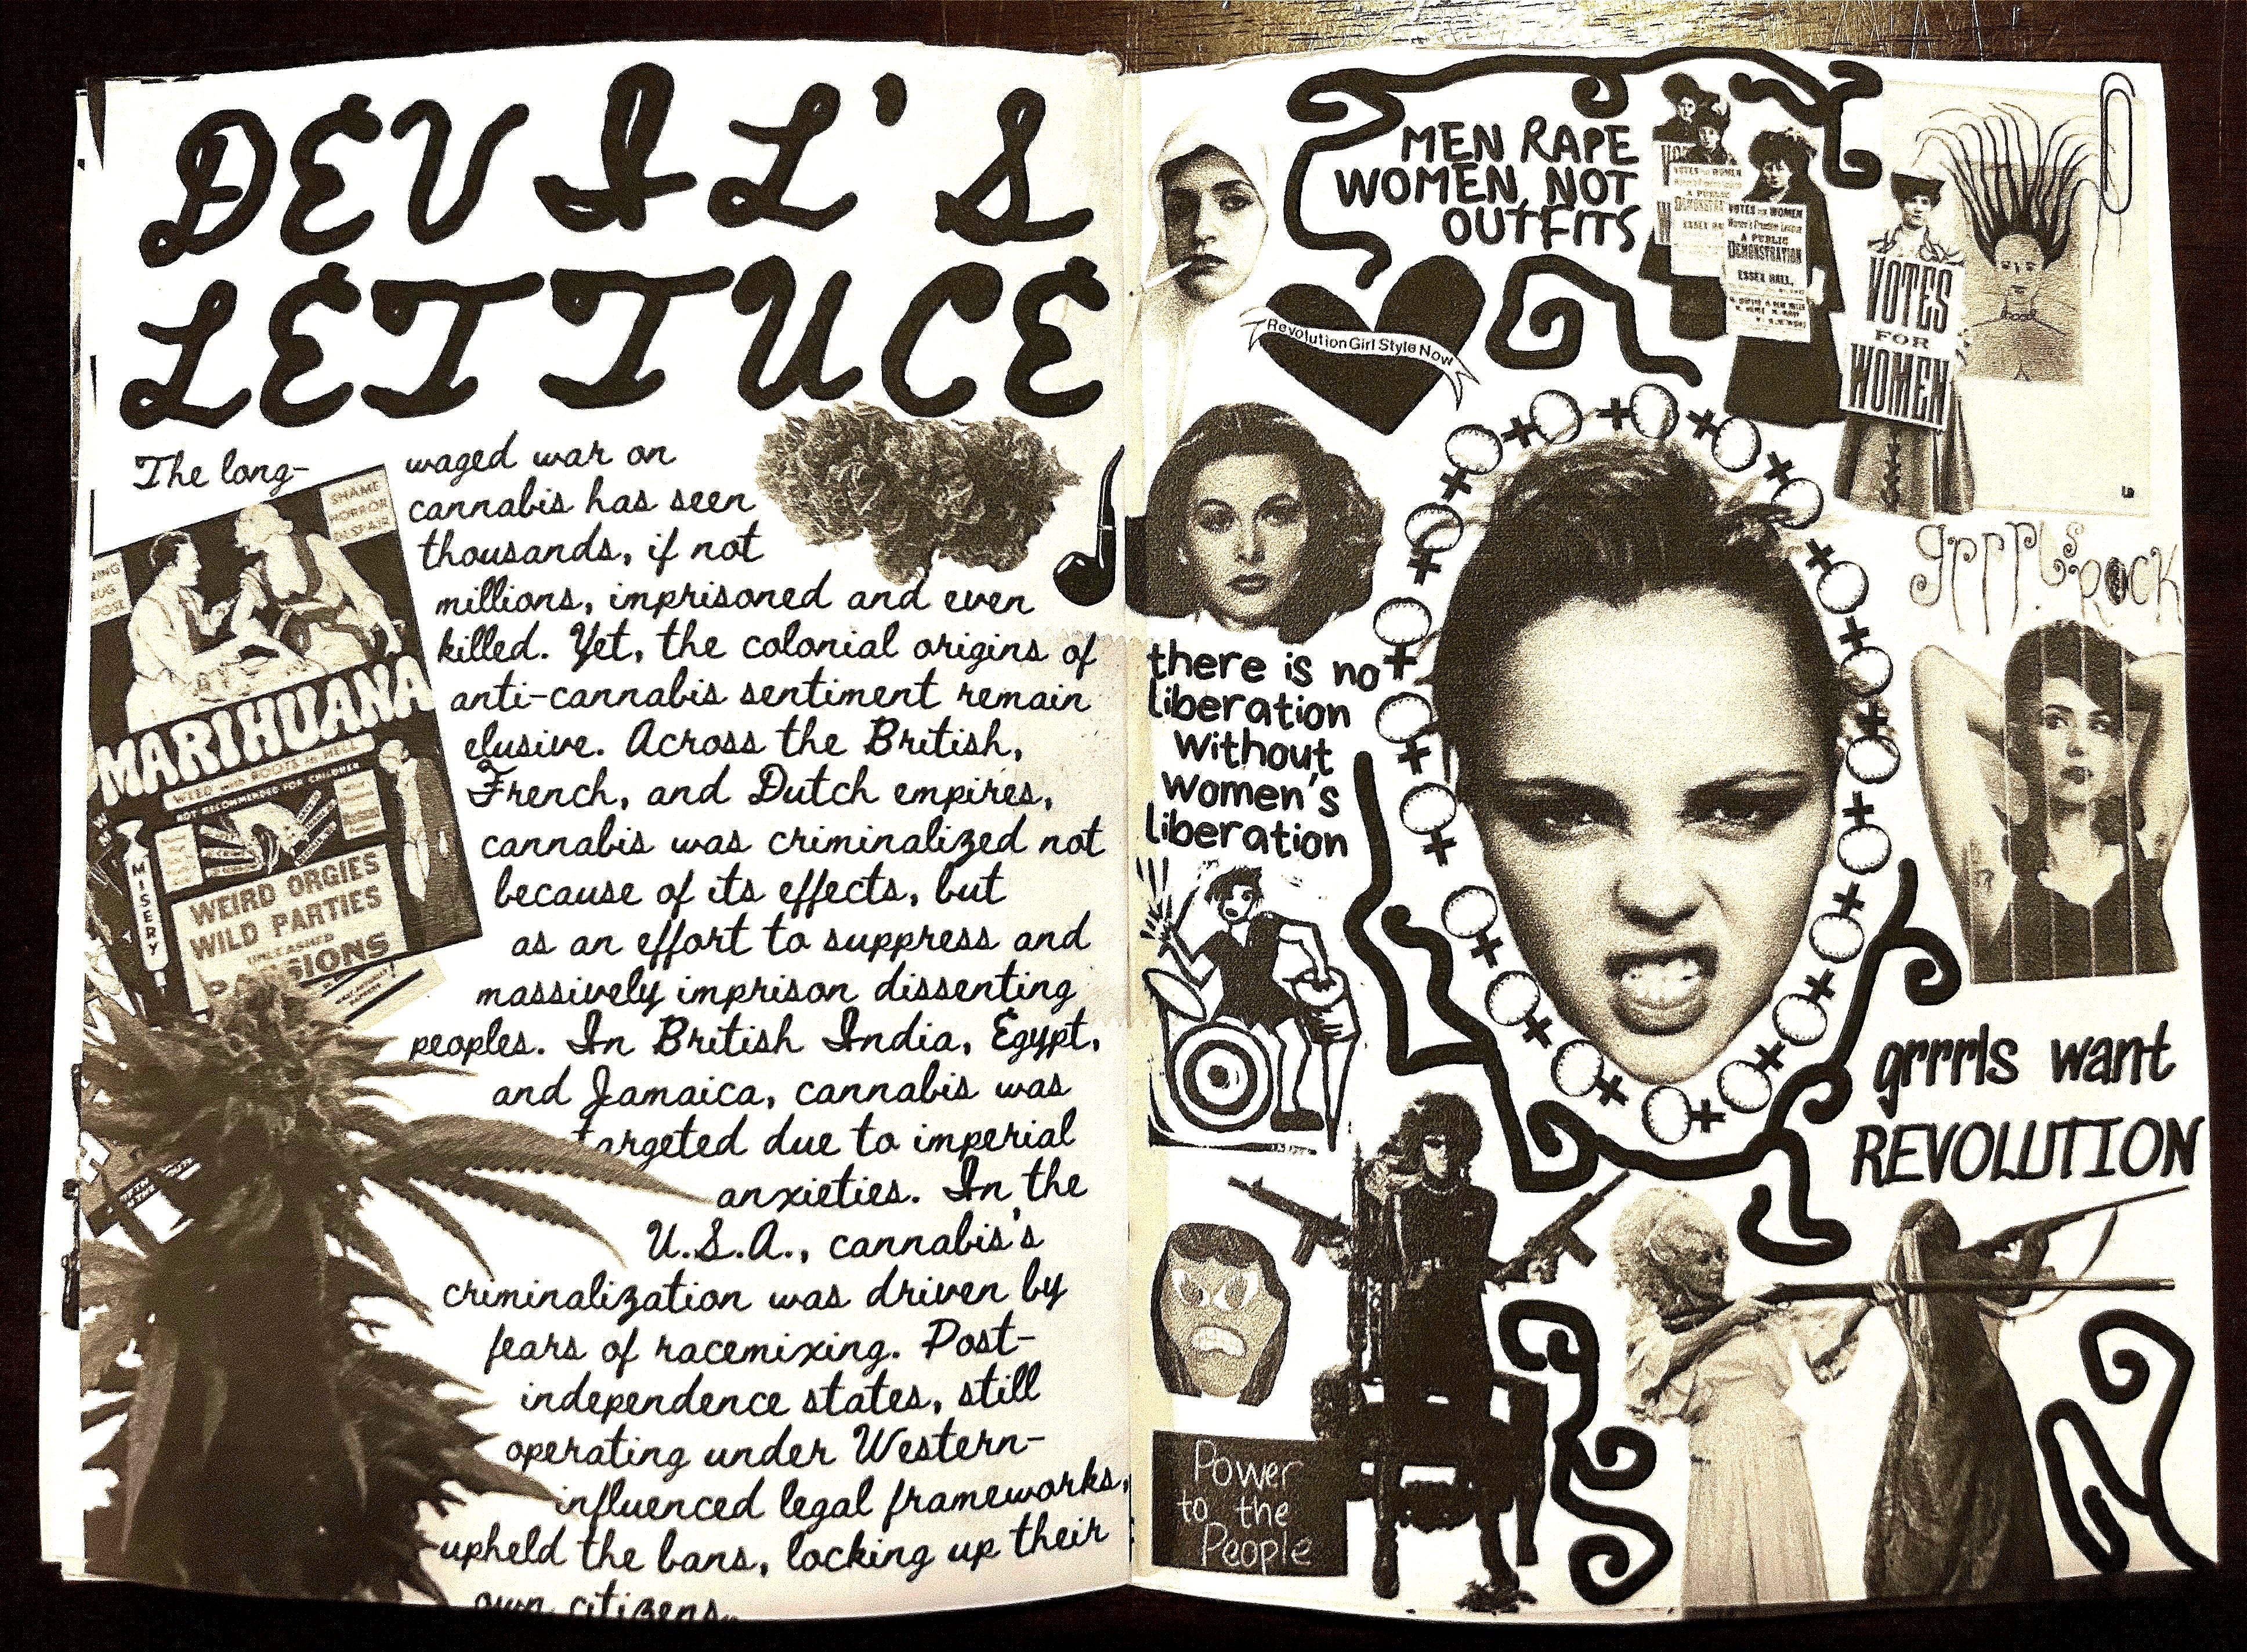 DEVIL'S
LETTUCE
The long-
waged war on
cannabis has seen
thousands, if not
millions, imprisoned and even
killed. Yet, the colonial origins of
anti-cannabis sentiment remain
elusive. Across the British,
French, and Dutch empires,
cannabis was criminalized not
because of its effects, but
as an effort to suppress and
massively imprison dissenting
peoples. In British India, Egypt,
and Jamaica, cannabis was
targeted due to imperial
anxieties. In the
U.S.A., cannabis's
criminalization was driven by
fears of racemixing. Post-
independence states, still
operating under Western-
influenced legal frameworks,
upheld the bans, locking up their
own citizens.
SHAME
HORROR
DESPAIR
MARIHUANA
WEED with ROOTS in HELL
NOT RECOMMENDED FOR CHILDREN
MISERY
WEIRD ORGIES
WILD PARTIES
UNLEASHED
PASSIONS
MEN RAPE
WOMEN, NOT
OUTFITS
VOTES FOR WOMEN
A PUBLIC
DEMONSTRATION
ESSEX HALL,
VOTES
FOR
WOMEN
Revolution Girl Style Now
grrrls
ROCK
there is no
liberation
without
women's
liberation
grrrls want
REVOLUTION
Power
to the
People